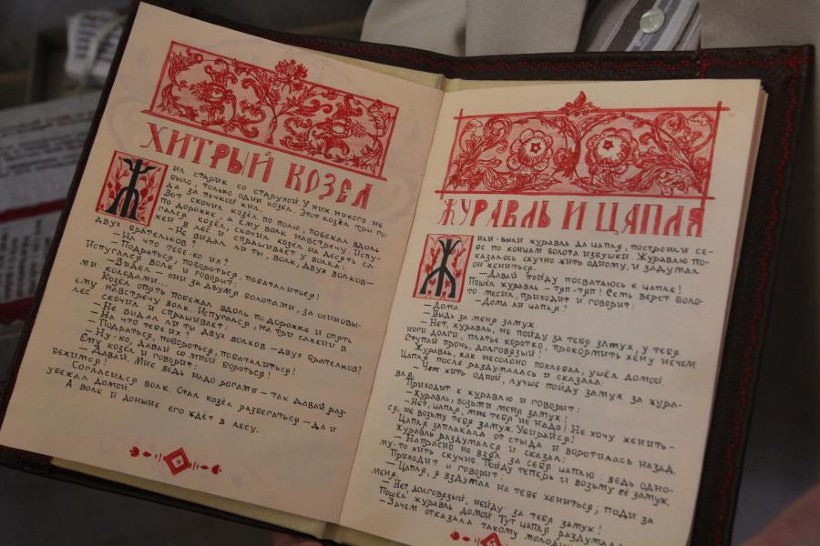 ХИТРЫЙ КОЗЕЛ
Жил старик со старухой. У них никого не
было, только один козёл. Этот козёл три го-
да за печкой жил.
Вот скочил козёл по полю, побежал вдоль
по дорожке, а ему волк навстречу. Испу-
гался козёл, скочил козёл на десять са-
жен в лес и спрашивает у волка:
– Не видал ли ты, волк, двух волков –
двух брателков?
– На что тебе-ко их?
– Подраться, побороться, побаталиться!
Испугался волк и говорит:
– Видел – они за двумя болотами, за
ми колодами...
Козёл опять побежал вдоль по дорожке и опять
ему навстречу волк. Испугался, на три сажени в
лес скочил и спрашивает:
– Не видал ли ты двух волков – двух брателков?
– На что тебе их?
– Подраться, побороться, побаталиться!
– Ну-ко, давай со мной бороться!
Ему козёл и говорит:
– Давай. Мне ведь надо рогами – так давай раз-
бежимся!
Согласился волк. Стал козёл разбегаться – да и
убежал домой.
А волк и доныне его ждёт в лесу.
ЖУРАВЛЬ И ЦАПЛЯ
Жили-были журавль да цапля, построили се-
бе по концам болота избушки. Журавлю по-
казалось скучно жить одному, и задумал
он жениться.
– Давай пойду посватаюсь к цапле!
Пошёл журавль – тяп-тяп! Семь вёрст боло-
то месил, приходит и говорит:
– Дома ли цапля?
– Дома.
– Выдь за меня замуж.
– Нет, журавль, не пойду за тебя замуж, у тебя
ноги долги, платье коротко, прокормить жену нечем.
Ступай прочь, долговязый!
Журавль, как несолоно похлебал, ушёл домой.
Цапля после раздумалась и сказала:
– Чем жить одной, лучше пойду замуж за жура-
вля.
Приходит к журавлю и говорит:
– Журавль, возьми меня замуж!
– Нет, цапля, мне тебя не надо! Не хочу женить-
ся, не возьму тебя замуж. Убирайся!
Цапля заплакала от стыда и воротилась назад.
Журавль раздумался и сказал:
– Напрасно не взял за себя цаплю: ведь одно-
му-то жить скучно. Пойду теперь и возьму её замуж.
Приходит и говорит:
– Цапля, я вздумал на тебе жениться; поди за
меня.
– Нет, долговязый, нейду за тебя замуж!
Пошёл журавль домой. Тут цапля раздумалась
– Зачем отказала такому